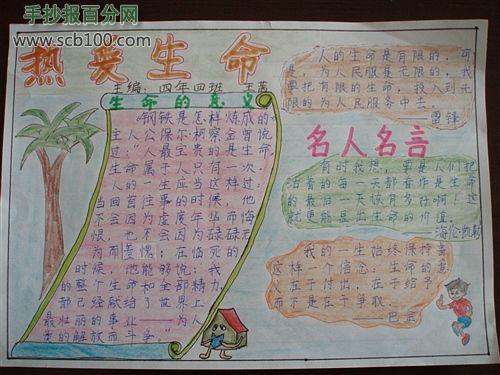 手抄报百分网
www.scb100.com
热爱生命
主编：四年四班 王
生命的意义
《钢铁是怎样炼成的》
主人公保尔·柯察金曾说
过：“人最宝贵的是生命，
生命属于人只有一次，
人的一生应当这样过：
当回首往事的时候，他
不会因为虚度年华而悔
恨，也不会因为碌碌无
为而羞愧；在临死的
时候，他能够说：我
的整个生命和全部精力，
都已经献给了世界上
最壮丽的事业——为人
类的解放而斗争。”
人的生命是有限的，可
是，为人民服务是无限的，我
要把有限的生命，投入到无
限的为人民服务中去。
雷锋
名人名言
有时我想，要是人们把
活着的每一天都看作是生命
的最后一天该有多好啊！这
就更能显出生命的价值。
海伦凯勒
我的一生始终保持着
这样一个信念：生命的意
义在于付出，在于给予，
而不是在于争取。
——巴金